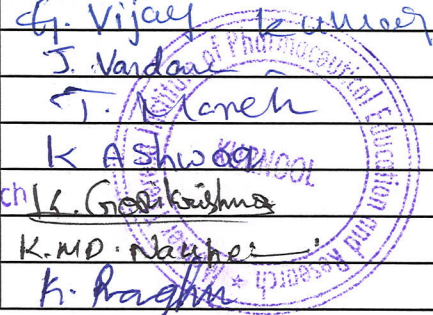 G. Vijay Kumar
J. Vandana
T. Manek
K Ashwaq
ch K. Gopi Krishna
K. MD. 
K. Raghu
Institute of Pharmaceutical Education and Research
KURNOOL